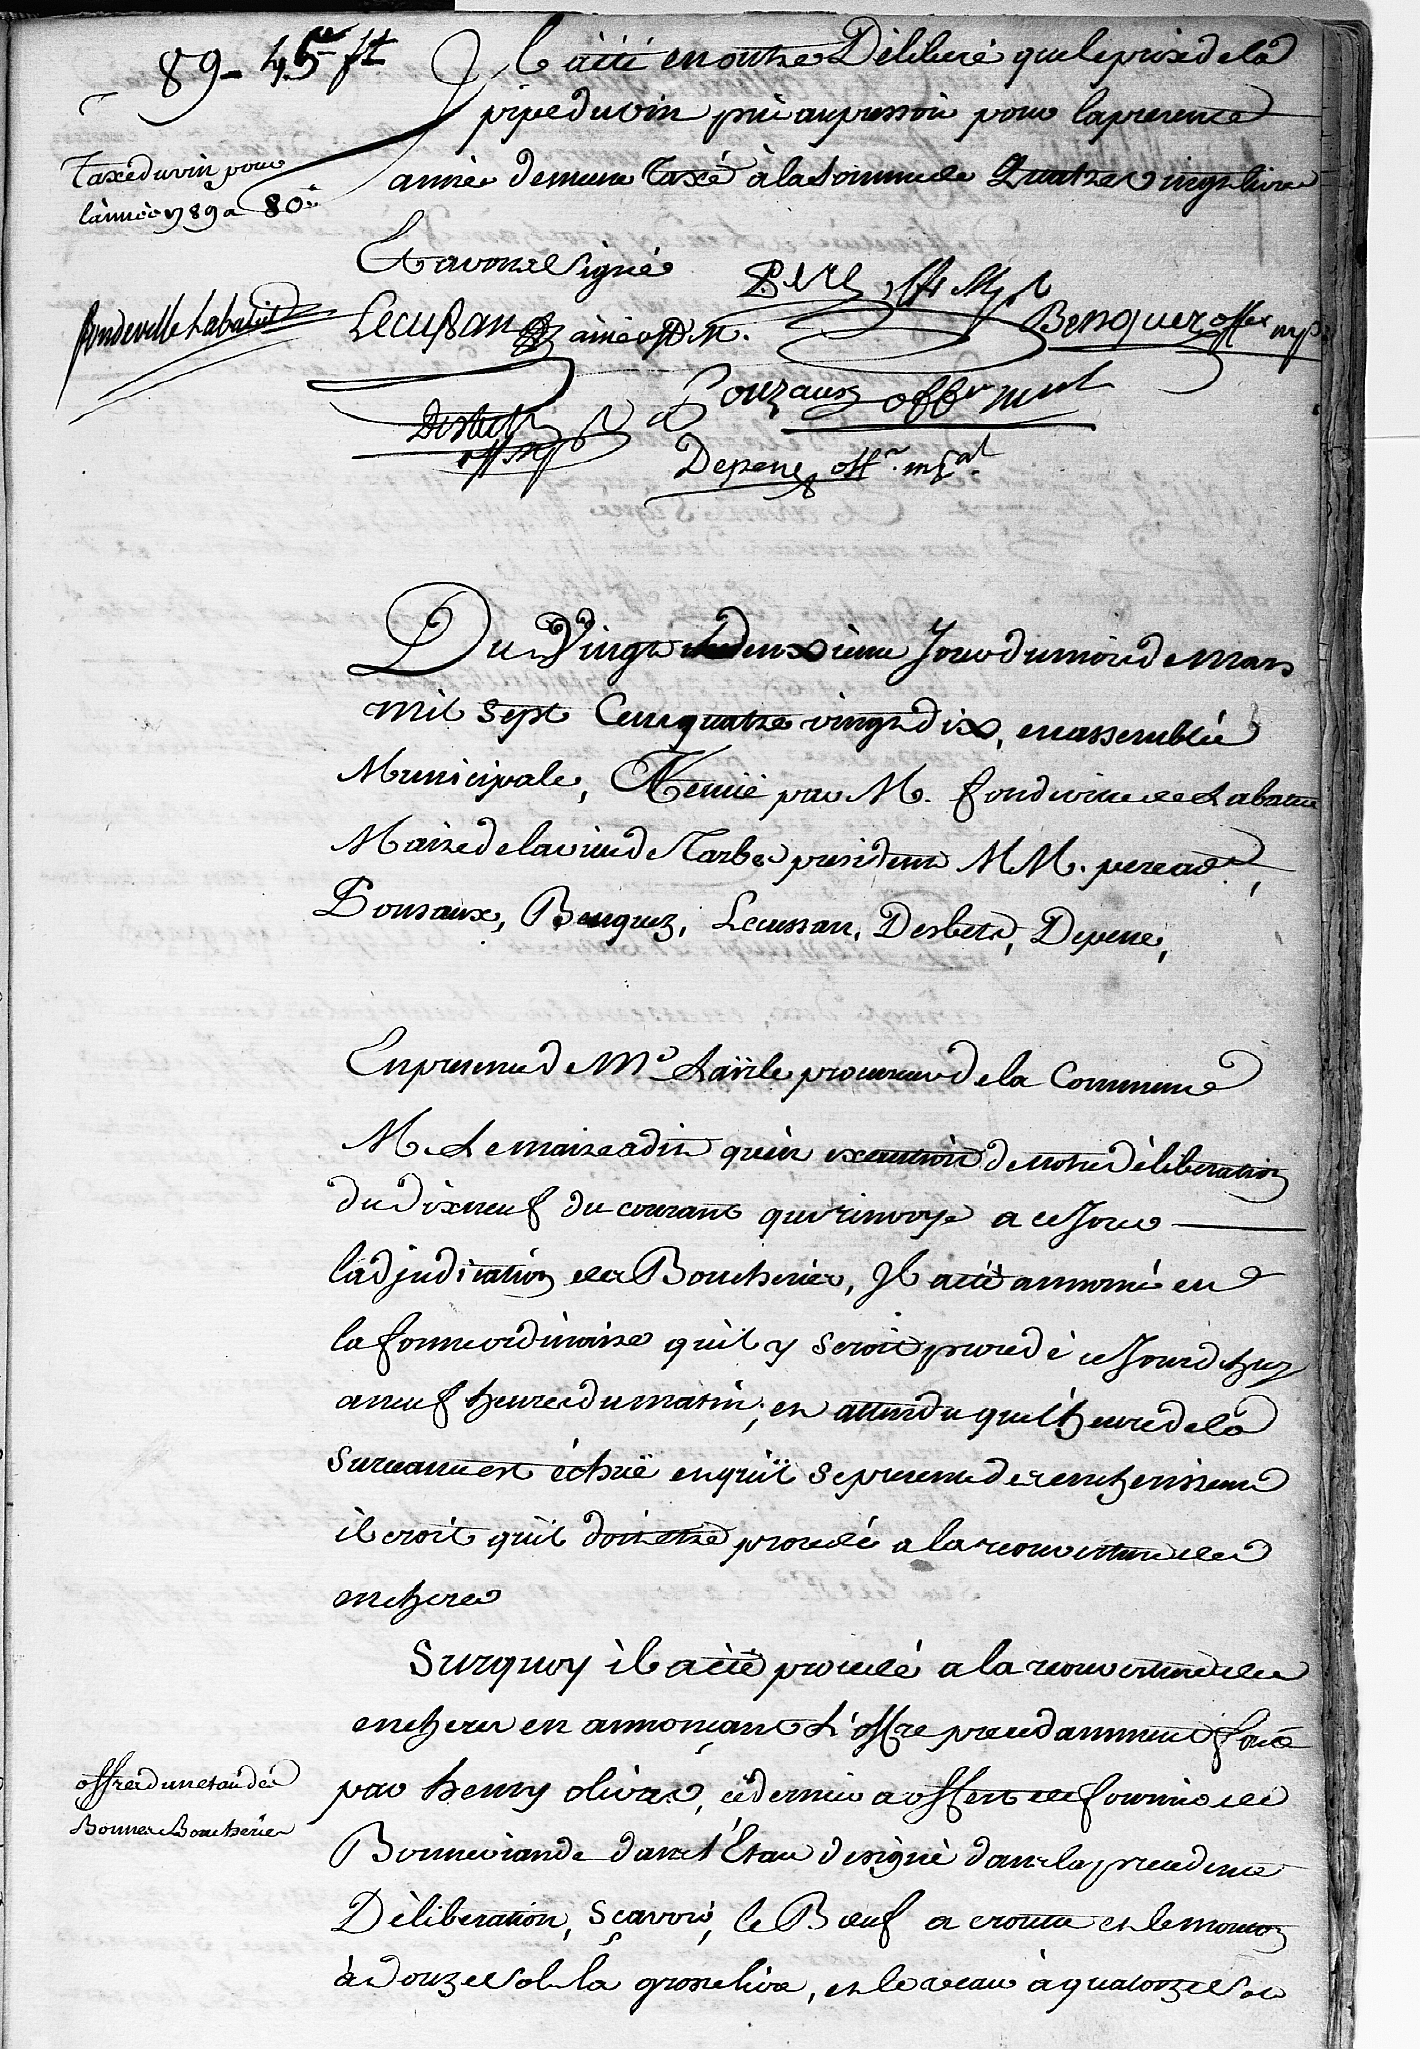 89 - 45e ft
Il a été en outre Déliberé que le prix de la
pipe du vin pris au pressoir pour la presente
année demeure taxé à la somme de Quatre vingt livres
Taxe du vin pour
l'année 1789 a 80 ll
Et avons Signé
Fondeville Labatut Lecussan ainé off. M. Pere off. M. pl Benquez offer mpl
Pouzaux offer mual
Desbets off. mpl
Depene, offr. mpal
Du Vingt deuxième Jour du mois de mars
mil sept Cent quatre vingt dix, en assemblée
Municipale, Tenuë par M. fondeville de Labatut
Maire de la ville de Tarbes president MM. pere adt,
Pousaux, Benquez, Lecussan, Desbets, Depene,
En presence de Mr. Lairle procureur de la Commune
M. Le maire a dit qu'en execution de notre déliberation
du dix neuf du courant qui renvoye a ce Jour
l'adjudication des Boucheries, Il a été annoncé en
la forme ordinaire qu'il y seroit procedé ce Jourd'huy
a neuf heures du matin; et attendu que l'heure de la
surceance est échuë et qu'il se presente des encherisseurs
il croit qu'il doit etre procedé a la reouverture des
encheres
Surquoy il a été procedé a la reouverture des
encheres en annonçant L'offre precedamment faite
par henry olivar, ce dernier a offert de fournir de
offres d'un etau des
Bonnes Boucheries
Bonne viande dans l'Etau designé dans la precedente
Déliberation, Sçavoir, le Bœuf a croute et le mouton
à Douze sols la grosse livre, et le veau à quatorze sols